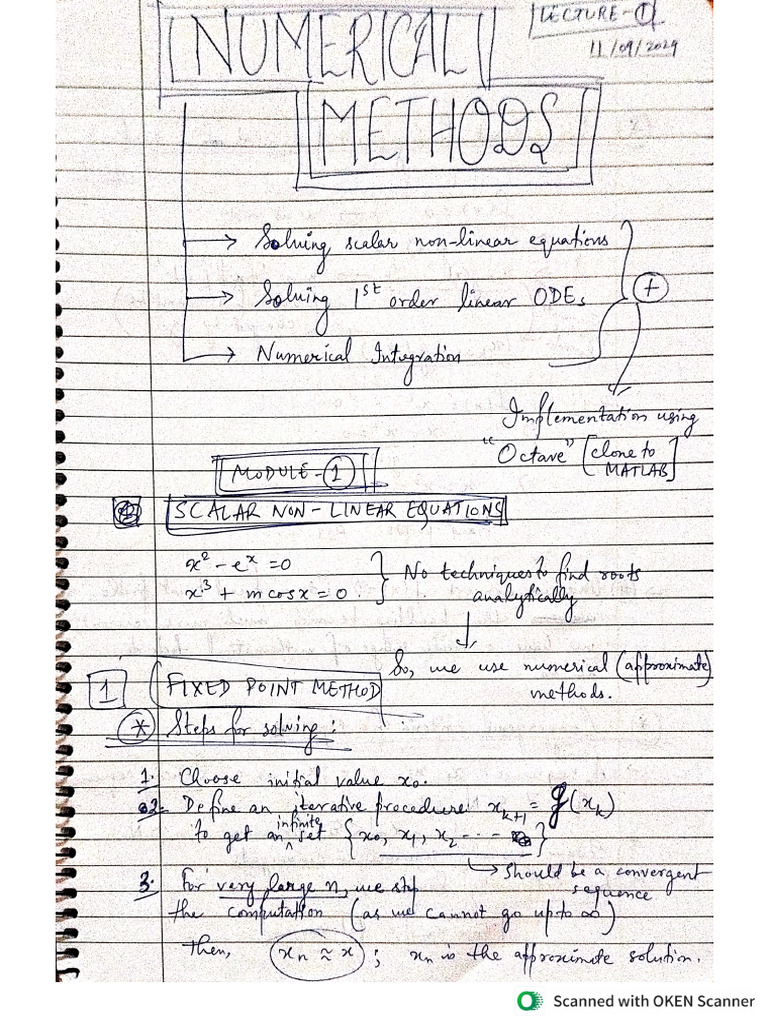 LECTURE-①
11/09/2024
NUMERICAL
METHODS
→ Solving scalar non-linear equations
→ Solving 1st order linear ODEs
→ Numerical Integration
+
Implementation using
"Octave" [clone to
MATLAB]
MODULE-①
SCALAR NON-LINEAR EQUATIONS
x² - eˣ = 0
x³ + m cosx = 0
No techniques to find roots
analytically
So, we use numerical (approximate)
methods.
1 FIXED POINT METHOD
* Steps for solving:
1. Choose initial value x₀.
2. Define an iterative procedure: xₖ₊₁ = g(xₖ)
to get an infinite set {x₀, x₁, x₂ ---- }
→ Should be a convergent
sequence
3. For very large n, we stop
the computation (as we cannot go upto ∞)
Then, xₙ ≈ x ; xₙ is the approximate solution.
Scanned with OKEN Scanner